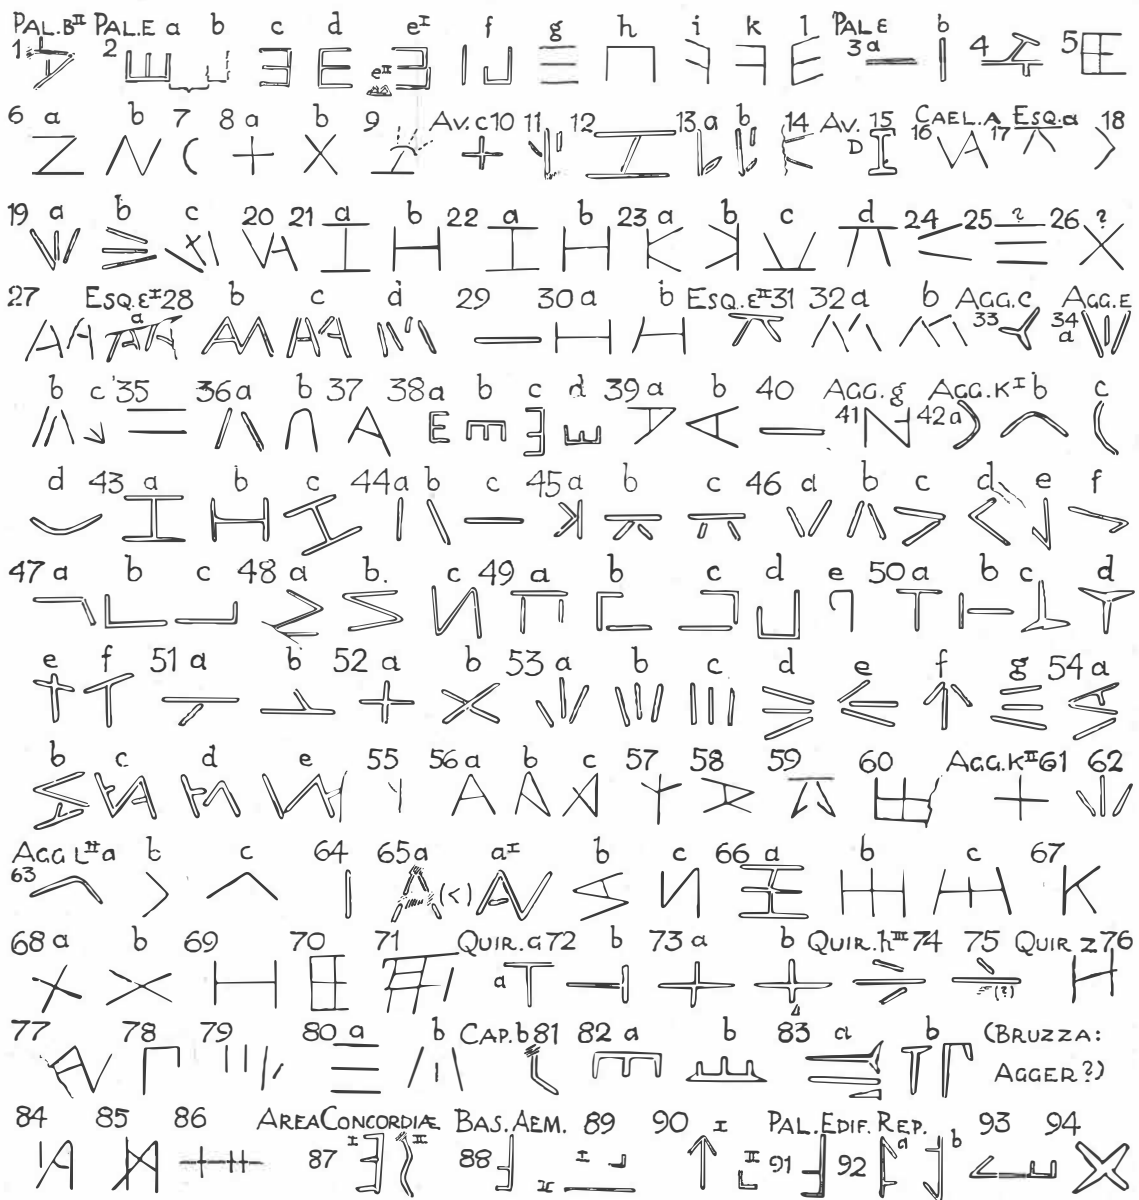 PAL.Bᴵᴵ PAL.E a b c d eᴵ f g h i k l PAL E b
1 2 eᴵᴵ 3 a 4 5
6 a b 7 8 a b 9 AV.C 10 11 12 13 a b 14 AV. D 15 CAEL.A 16 17 ESQ.a 18
19 a b c 20 21 a b 22 a b 23 a b c d 24 25 ? 26 ?
27 ESQ.Eᴵ 28 a b c d 29 30 a b ESQ.Eᴵᴵ 31 32 a b AGG.C 33 AGG.E 34 a
b c 35 36 a b 37 38 a b c d 39 a b 40 AGG.g 41 AGG.Kᴵ 42 a b c
d 43 a b c 44 a b c 45 a b c 46 a b c d e f
47 a b c 48 a b. c 49 a b c d e 50 a b c d
e f 51 a b 52 a b 53 a b c d e f g 54 a
b c d e 55 56 a b c 57 58 59 60 AGG.Kᴵᴵ 61 62
AGG Lᴵᴵ a b c 64 65 a aᴵ b c 66 a b c 67
63 (<)
68 a b 69 70 71 QUIR.a 72 a b 73 a b QUIR.hᴵᴵᴵ 74 75 (?) QUIR Z 76
77 78 79 80 a b CAP.b 81 82 a b 83 a b (BRUZZA:
AGGER?)
84 85 86 AREA CONCORDIÆ BAS.AEM. 89 90 I PAL.EDIF.REP. 93 94
87 I II 88 I II II 91 92 a b